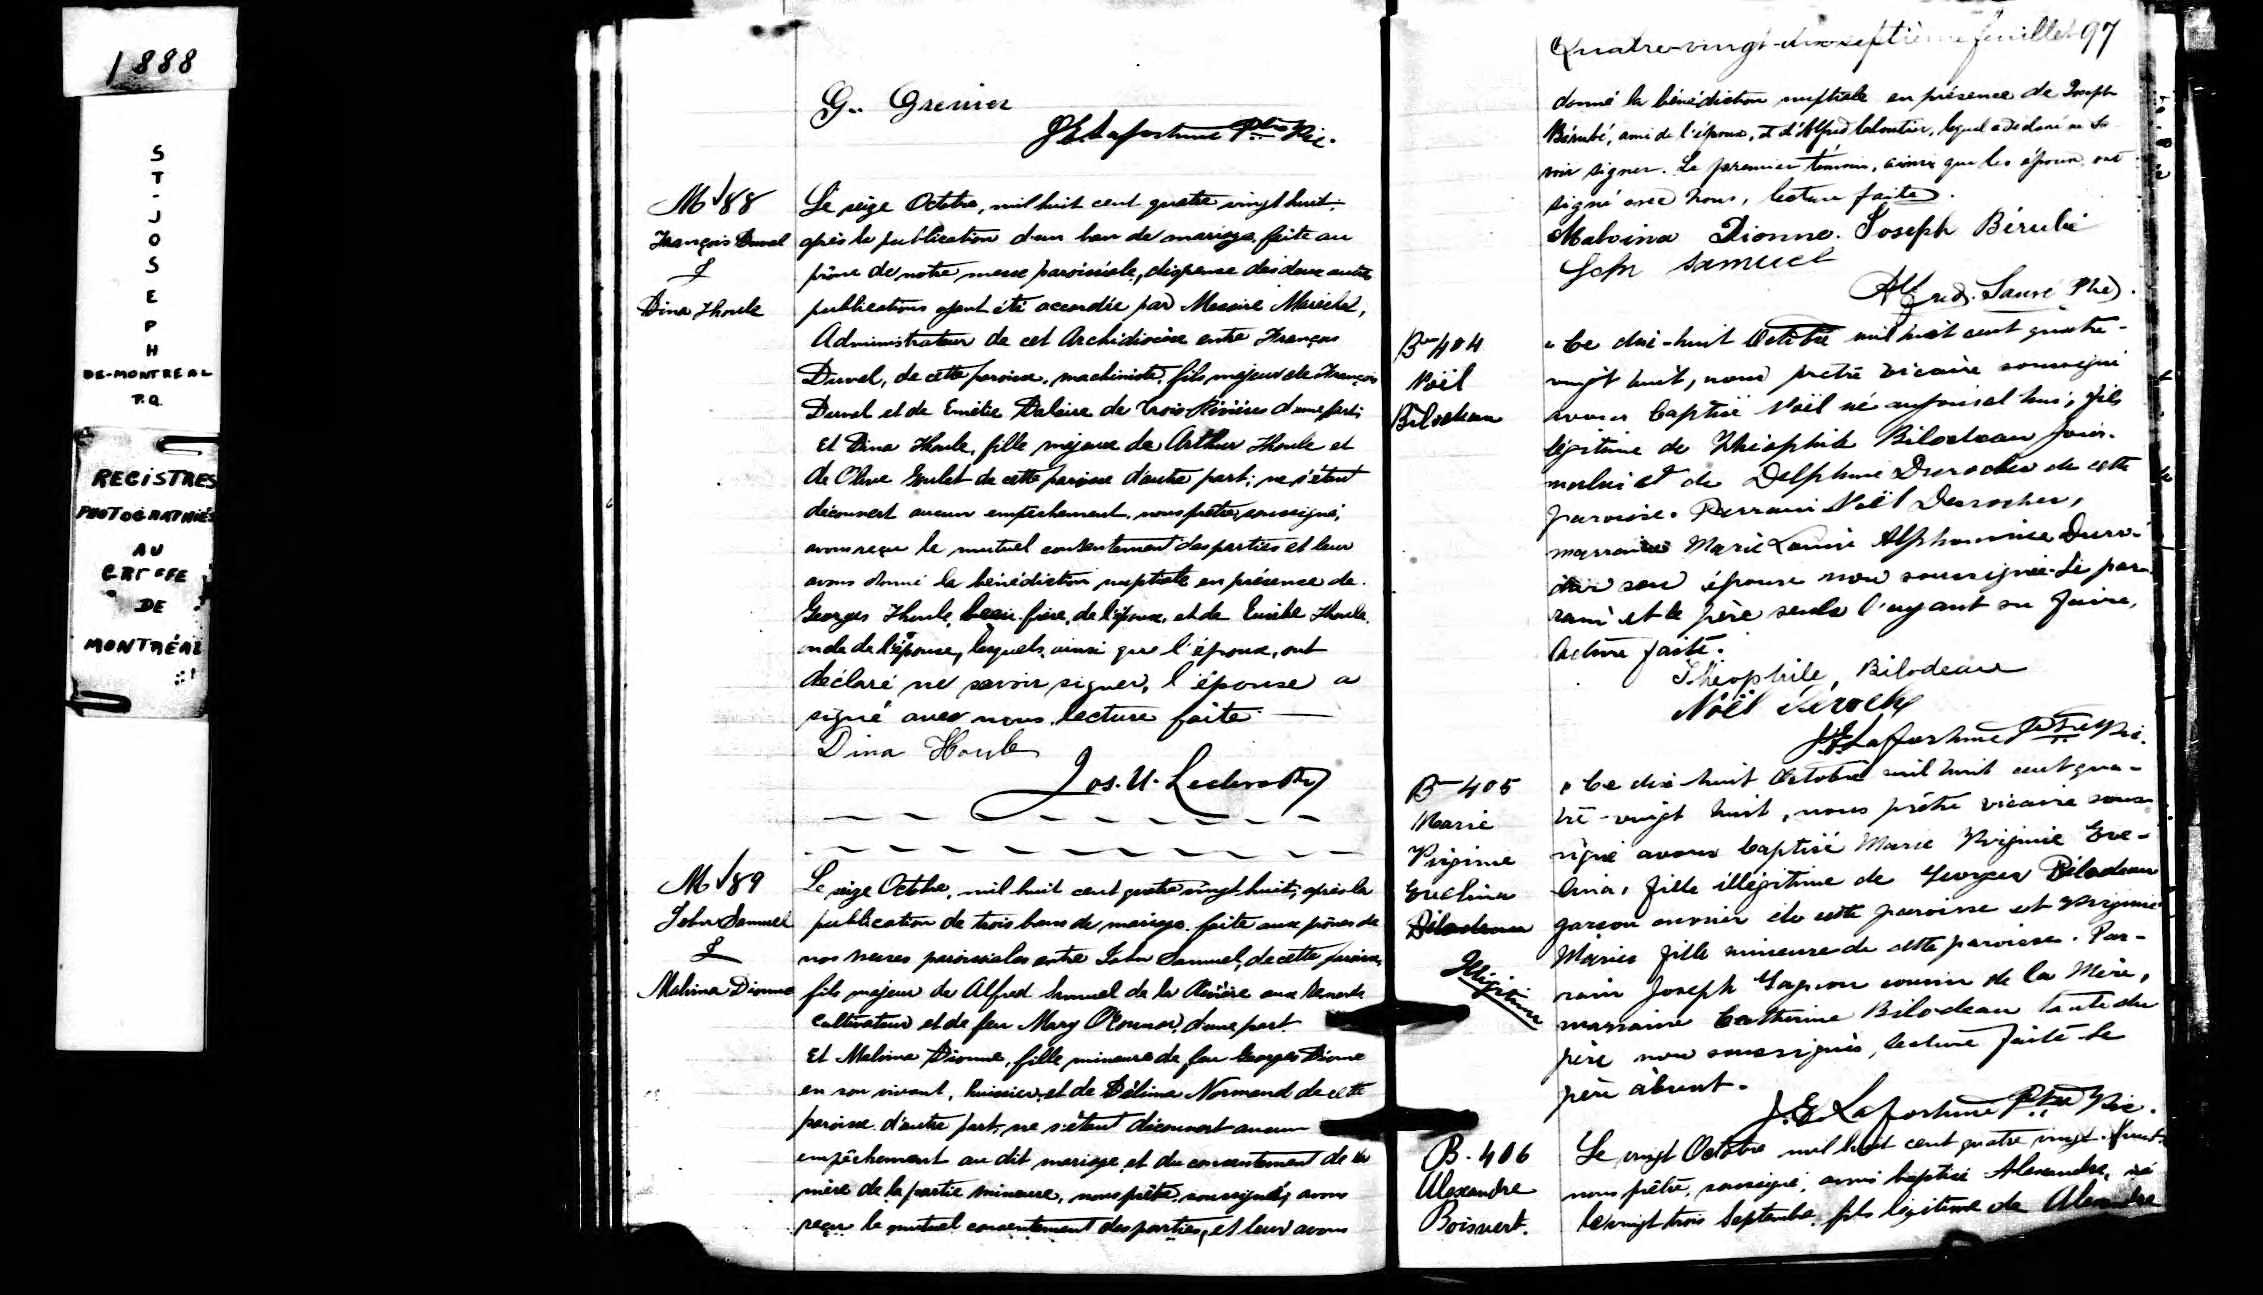 1888
ST-JOSEPH
DE-MONTREAL
P.Q.
REGISTRES
PHOTOGRAPHIÉS
AU
GREFFE
DE
MONTRÉAL
G. Grenier
J.E. Lafortune Ptre Vic.
M 88
François Duval
&
Dina Houle
Le seize Octobre, mil huit cent quatre vingt huit,
après la publication d'un ban de mariage faite au
prône de notre messe paroissiale, dispense des deux autres
publications ayant été accordée par Messire Maréchal,
Administrateur de cet Archidiocèse entre François
Duval, de cette paroisse, machiniste, fils majeur de François
Duval et de Emélie Dalaire de Trois-Rivières d'une part;
et Dina Houle, fille majeure de Arthur Houle et
de Olive Goulet de cette paroisse d'autre part; ne s'étant
découvert aucun empêchement, nous prêtre, soussigné,
avons reçu le mutuel consentement des parties et leur
avons donné la bénédiction nuptiale en présence de
Georges Houle, beau-frère, de l'époux, et de Houle
oncle de l'épouse, lesquels, ainsi que l'époux, ont
déclaré ne savoir signer, l'épouse a
signé avec nous, lecture faite.
Dina Houle
Jos. U. Leclerc
M 89
John Samuel
&
Malvina Dionne
Le seize Octobre, mil huit cent quatre vingt huit, après la
publication de trois bans de mariage faite aux prônes de
nos messes paroissiales entre John Samuel, de cette paroisse,
fils majeur de Alfred Samuel de la Rivière aux Renards
cultivateur et de feu Mary O'Connor, d'une part
Et Malvina Dionne, fille mineure de feu Georges Dionne
en son vivant, huissier, et de Délima Normand de cette
paroisse d'autre part, ne s'étant découvert aucun
empêchement au dit mariage et du consentement de la
mère de la partie mineure, nous prêtre, soussigné, avons
reçu le mutuel consentement des parties, et leur avons
Quatre-vingt-dix-septième feuillet 97
donné la bénédiction nuptiale en présence de Joseph
Bérubé, ami de l'époux, et d'Alfred lequel a déclaré ne sa-
voir signer. Le premier témoin, ainsi que les époux, ont
signé avec nous, lecture faite.
Malvina Dionne. Joseph Bérubé
John Samuel
Alfred. Sauvé Ptre.
B-404
Noël
Bilodeau
Ce dix-huit Octobre mil huit cent quatre-
vingt huit, nous prêtre vicaire soussigné
avons baptisé Noël né aujourd'hui, fils
légitime de Théophile Bilodeau jour-
nalier et de Delphine Durocher de cette
paroisse. Parrain Noël Desrocher,
marraine Marie Louise Alphonsine Duro-
cher son épouse non soussignée. Le par-
rain et le père seuls l'ayant su faire,
lecture faite.
Théophile, Bilodeau
Noël
J.E. Lafortune Ptre Vic.
B-405
Marie
Virginie
Evelina
Bilodeau
Illégitime
Ce dix huit Octobre mil huit cent qua-
tre-vingt huit, nous prêtre vicaire sous-
signé avons baptisé Marie Virginie Eve-
lina, fille illégitime de Georges Bilodeau
garçon ouvrier de cette paroisse et Virginie
fille mineure de cette paroisse. Par-
rain Joseph Gagnon cousin de la Mère,
marraine Catherine Bilodeau tante du
père non soussignés, lecture faite. Le
père absent.
J.E. Lafortune Ptre Vic.
B-406
Alexandre
Boisvert.
Le vingt Octobre mil huit cent quatre vingt-huit
nous prêtre, soussigné, avons baptisé Alexandre, né
le vingt trois Septembre, fils légitime de Alexandre